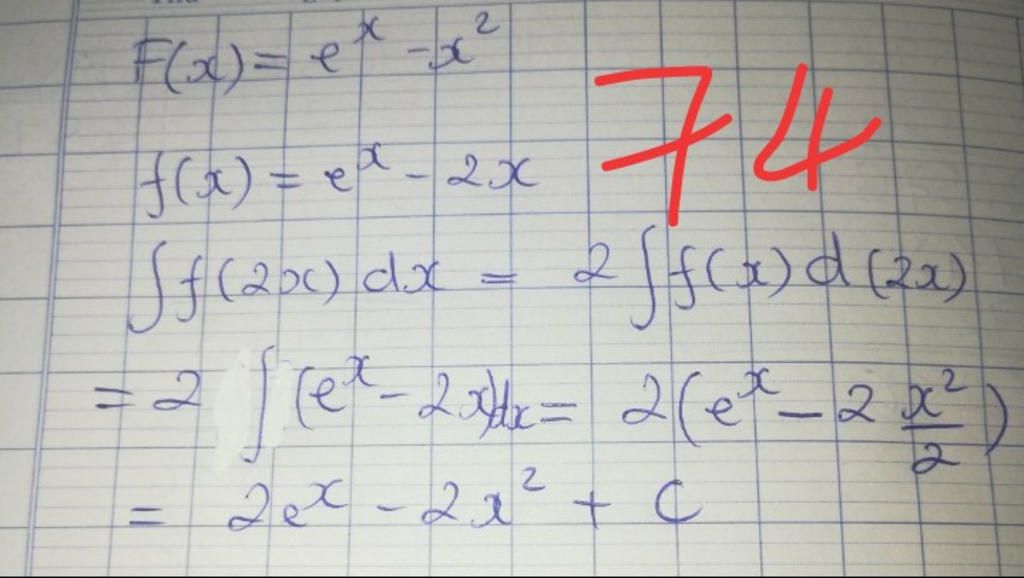 F(x) = e^x - x^2
74
f(x) = e^x - 2x
∫f(2x) dx = 2∫f(x) d(2x)
= 2 ∫(e^x - 2x)dx = 2(e^x - 2 x^2/2)
= 2e^x - 2x^2 + C